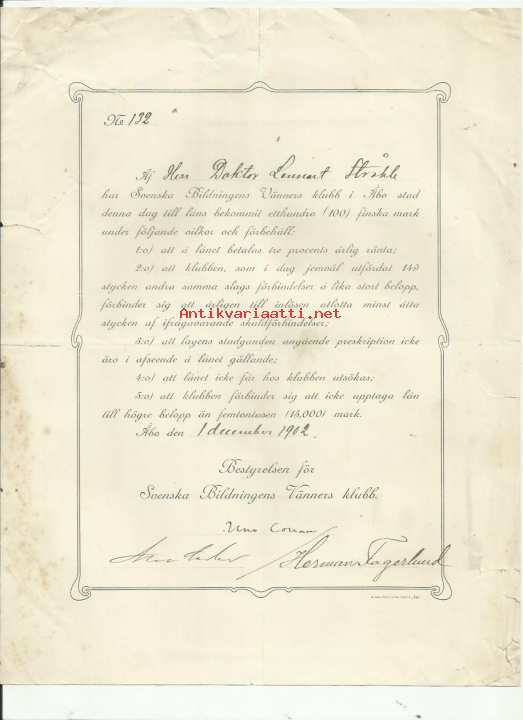 No 132
Af Herr Doktor Lennart Stråhle
har Svenska Bildningens Vänners klubb i Åbo stad
denna dag till låns bekommit etthundra (100) finska mark
under följande vilkor och förbehåll:
1:o) att å lånet betalas tre procents årlig ränta;
2:o) att klubben, som i dag jemväl utfärdat 149
stycken andra samma slags förbindelser å lika stort belopp,
förbinder sig att årligen till inlösen utlotta minst åtta
stycken af ifrågavarande skuldförbindelser;
Antikvariaatti.net
3:o) att lagens stadganden angående preskription icke
äro i afseende å lånet gällande;
4:o) att lånet icke får hos klubben utsökas;
5:o) att klubben förbinder sig att icke upptaga lån
till högre belopp än femtontusen (15,000) mark.
Åbo den 1 december 1902.
Bestyrelsen för
Svenska Bildningens Vänners klubb.
Herman Fagerlund